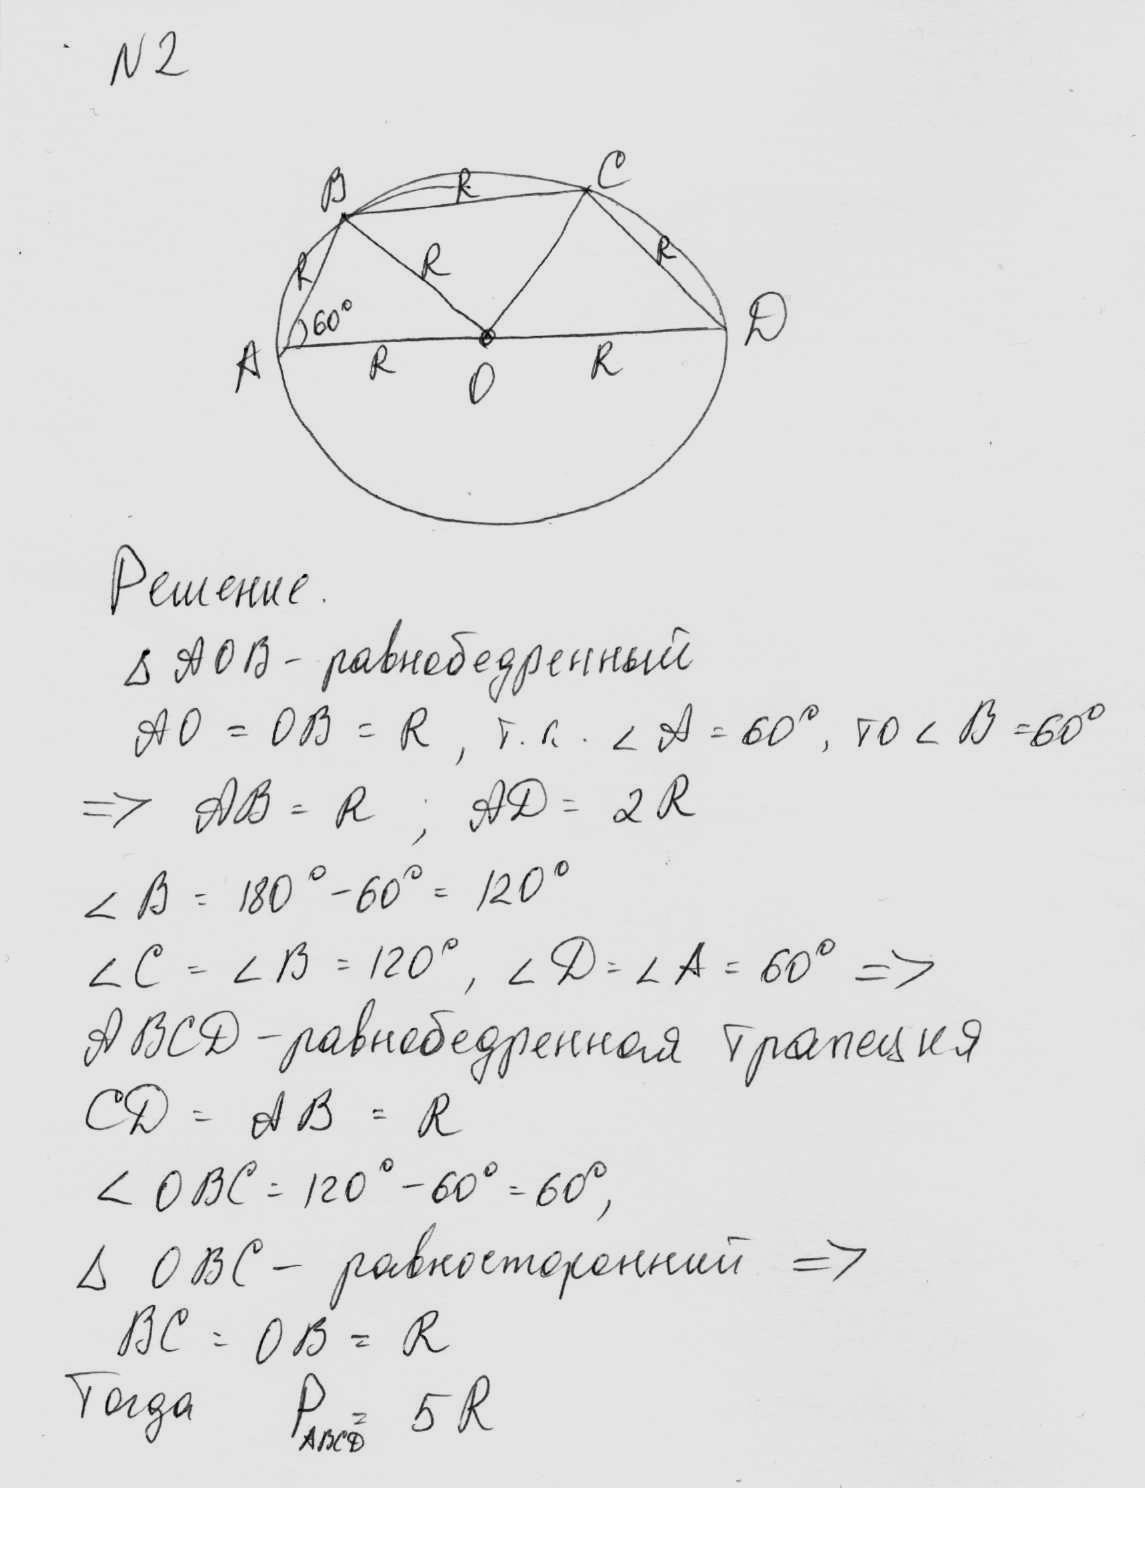 N2
B
R
C
R
R
R
60°
A
R
O
R
D
Решение.
Δ AOB - равнобедренный
AO = OB = R, т.к. ∠A = 60°, то ∠B = 60°
=> AB = R ; AD = 2R
∠B = 180° - 60° = 120°
∠C = ∠B = 120°, ∠D = ∠A = 60° =>
ABCD - равнобедренная трапеция
CD = AB = R
∠OBC = 120° - 60° = 60°,
Δ OBC - равносторонний =>
BC = OB = R
Тогда P ABCD = 5R